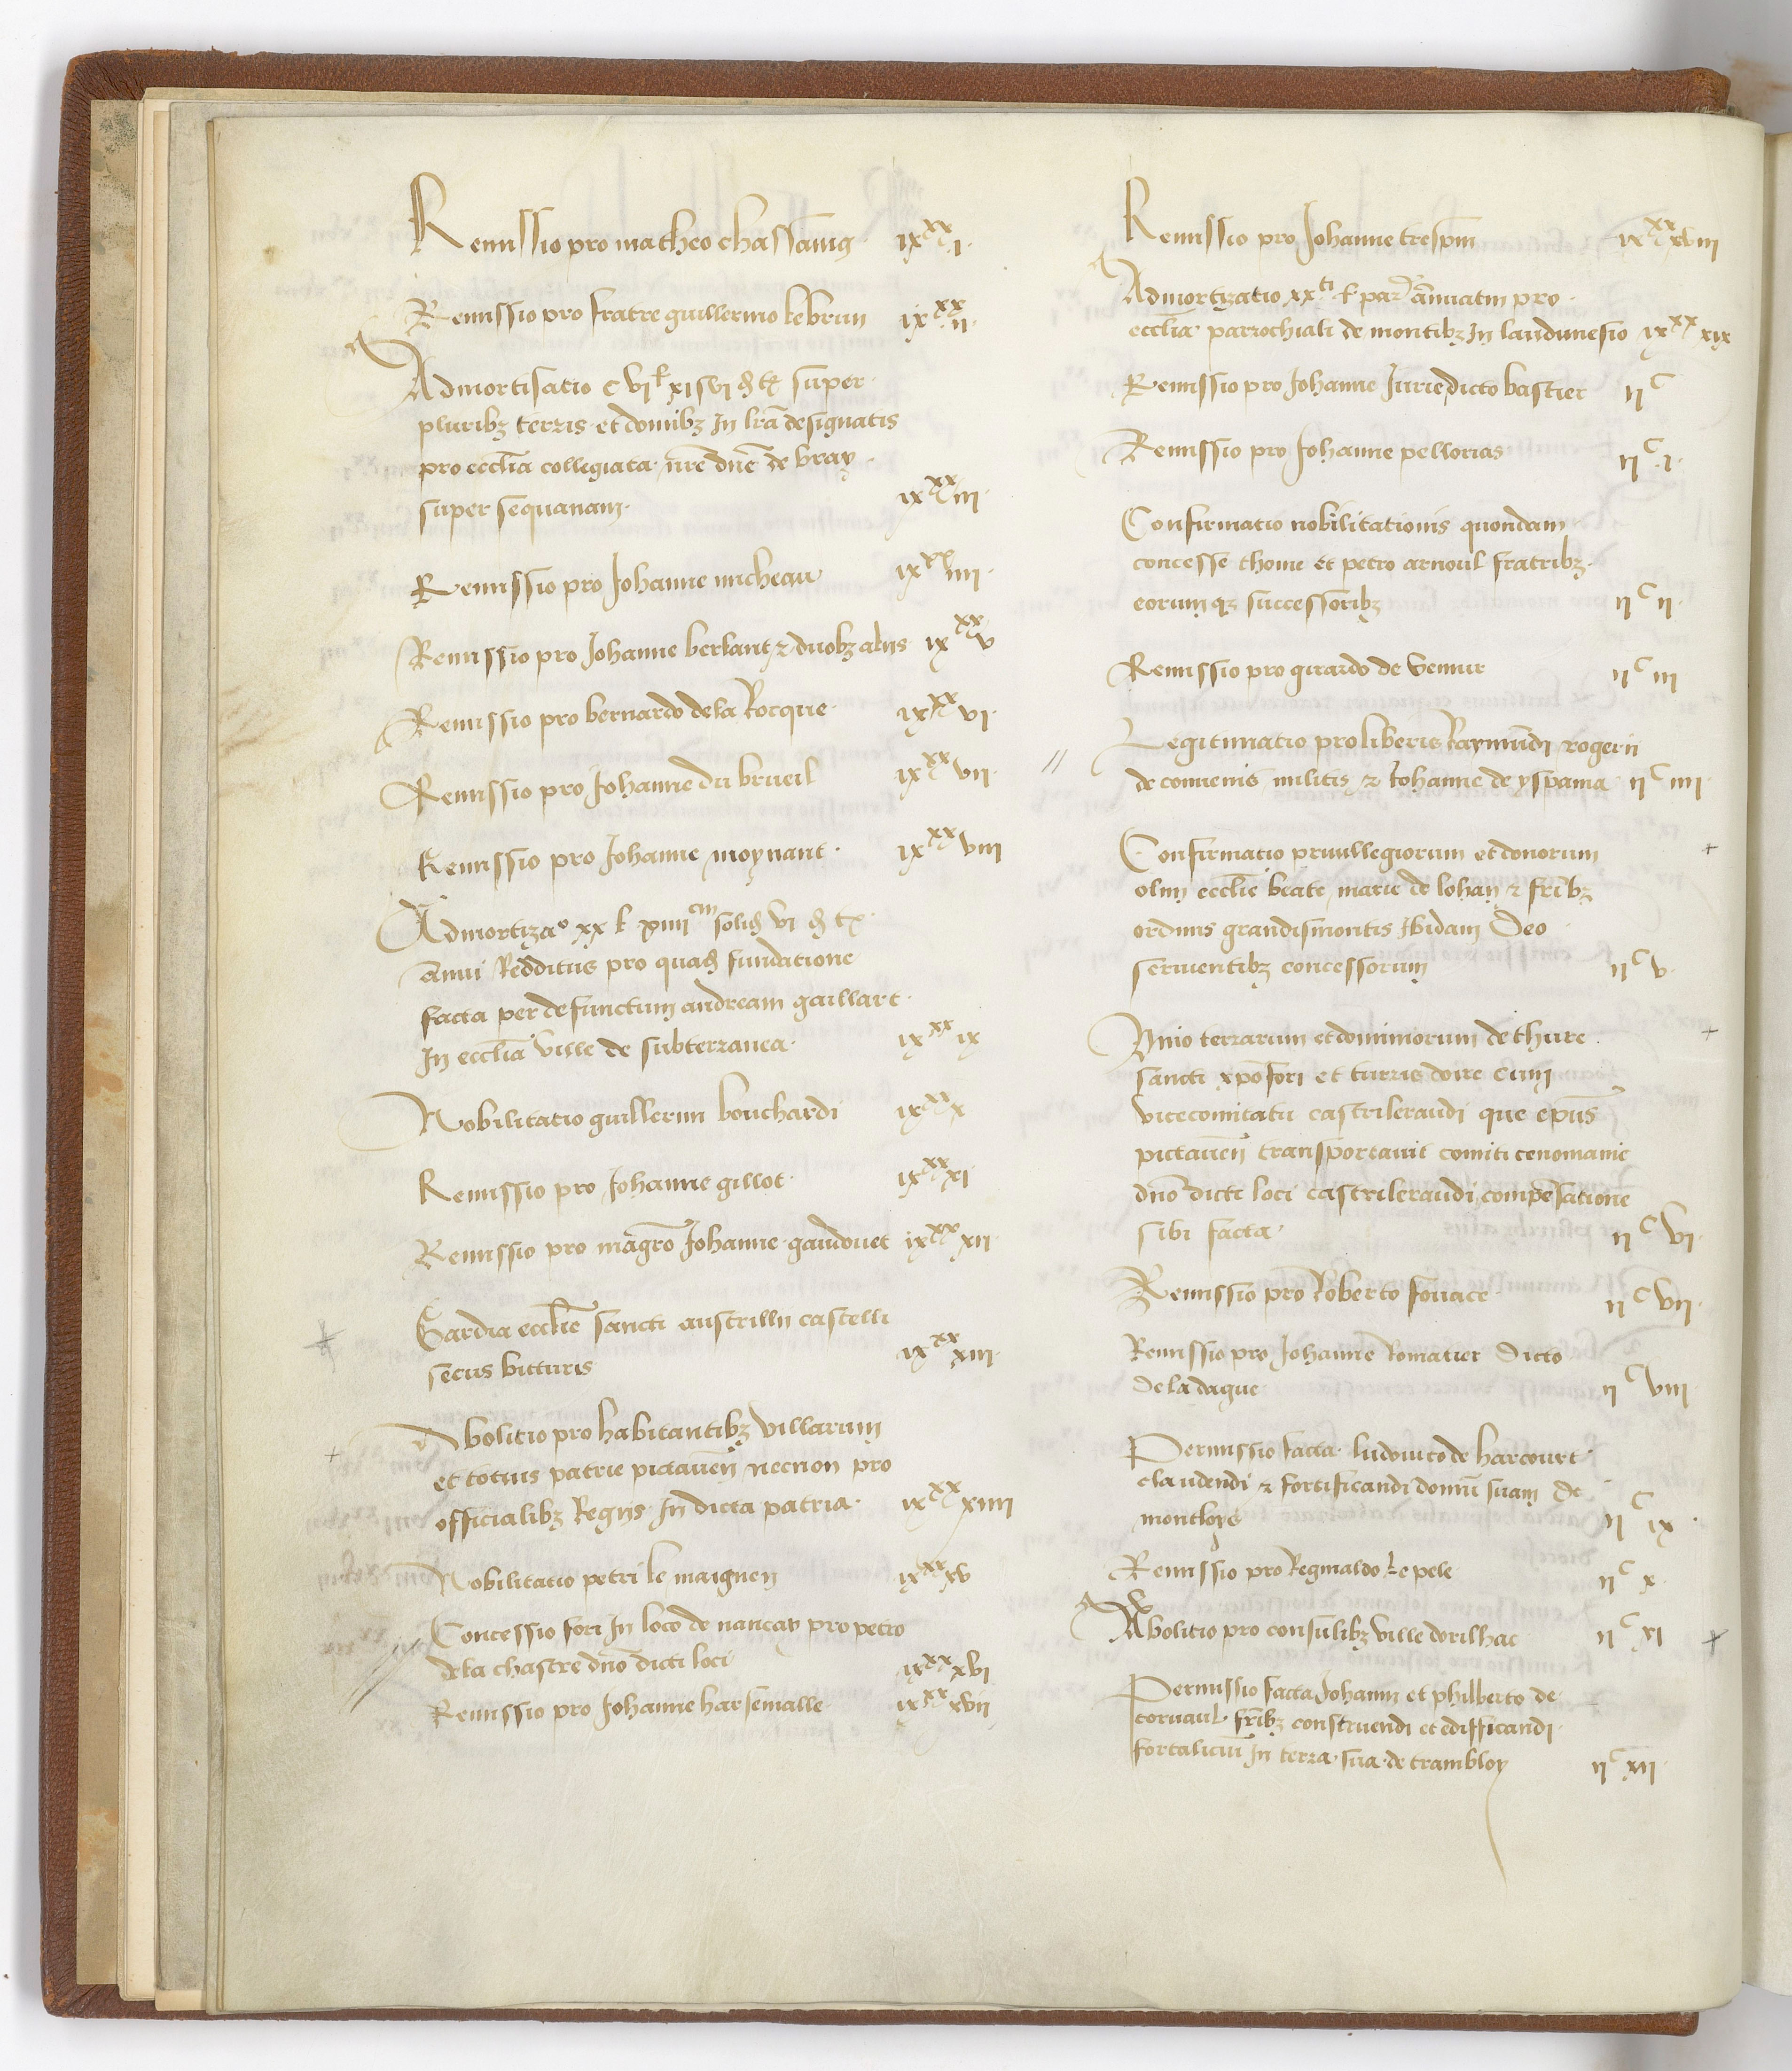 Remissio pro matheo chassaing ixˣˣ.i.
Remissio pro fratre guillermo le brun ixˣˣ.ii.
Admortisatio c vi ł xi s vi d t super
pluribz terris et domibz In lrā designatis
pro ecclīa collegiata nrē dnē de vray
super sequanam. ixˣˣiii.
Remissio pro Johanne micheau ixˣˣiiii.
Remissio pro Johanne berlant & duobz aliis ixˣˣv
Remissio pro bernardo dela Rocque ixˣˣvi.
Remissio pro Johanne du brueil ixˣˣvii.
Remissio pro Johanne moynant. ixˣˣviii
Admortizaº xx ł xiiiicim solid vi d t
ānui Redditus pro quad fundatione
facta per defunctum andream gaillart.
In ecclīa ville de subterranea. ixˣˣix
Nobilitatio guillermi bouchardi ixˣˣx
Remissio pro Johanne gillot. ixˣˣxi
Remissio pro magrō Johanne gaudouet ixˣˣxii
Gardia ecclīe sancti austrillii castelli
secus bitturis ixˣˣxiii.
Abolitio pro habitantibz villarum
et totius patrie pictaueñ necnon pro
officialibz Regiis In dicta patria. ixˣˣxiiii
Nobilitatio petri le maignen ixˣˣxv
Concessio fori In loco de nancay pro petro
dela chastre dnō dicti loci ixˣˣxvi
Remissio pro Johanne harsemalle. ixˣˣxvii
Remissio pro Johanne trespin ixˣˣxviii
Admortizatio xxti ł par ānuatim pro.
ecclīa parrochiali de montibz In laudunesio ixˣˣxix
Remissio pro Johanne Jurie dicto bastier iiᶜ
Remissio pro Johanne pellorias iiᶜ.i.
Confirmatio nobilitationis quondam
concesse thome et petro arnoul fratribz.
eorumqz successoribz iiᶜii.
Remissio pro girardo de vennir iiᶜiii
Legitimatio pro liberis Raymūdi rogerii
de conuenis militis & Johanne de yspania iiᶜiiii.
Confirmatio priuillegiorum et donorum
olim ecclīe beate marie de lohan & frībz
ordinis grandismontis Ibidam Deo
seruientibz concessorum iiᶜv.
Vnio terrarum et dominiorum de thure.
sancti xpōfori et turris doire cum
vicecomitatu castrileraudi que epūs
pictaueñ transportauit comiti cenomanie
dnō dicti loci castrileraudi compēsatione
sibi facta. iiᶜvi.
Remissio pro Roberto fouace iiᶜvii.
Remissio pro Johanne Romatier Dicto
De la dague iiᶜviii.
Permissio facta ludouico de harcourt
claudendi & fortificandi domū suam de
montloys iiᶜix.
Remissio pro Reginaldo Le pele iiᶜx.
Abolitio pro consulibz ville dorilhac iiᶜxi
Permissio facta Johanni et philberto de
coruaul frībz construendi et edifficandi.
fortaliciū In terra sua de trambloy iiᶜxii.